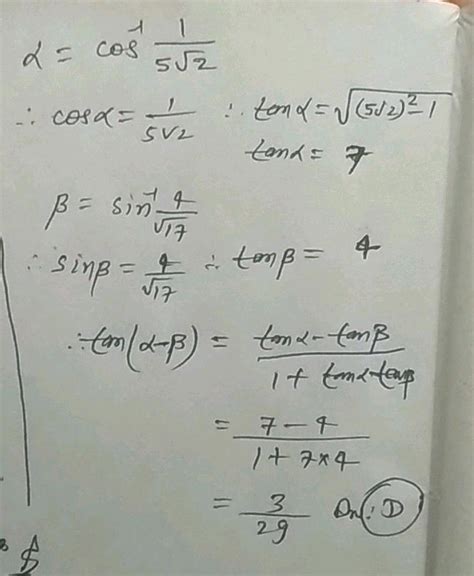 α = cos⁻¹ 1/5√2
∴ cosα = 1/5√2 ∴ tanα = √(5√2)²-1
tanα = 7
β = sin⁻¹ 4/√17
∴ sinβ = 4/√17 ∴ tanβ = 4
∴ tan(α-β) = tanα - tanβ / 1 + tanα tanβ
= 7 - 4 / 1 + 7×4
= 3/29 An: D